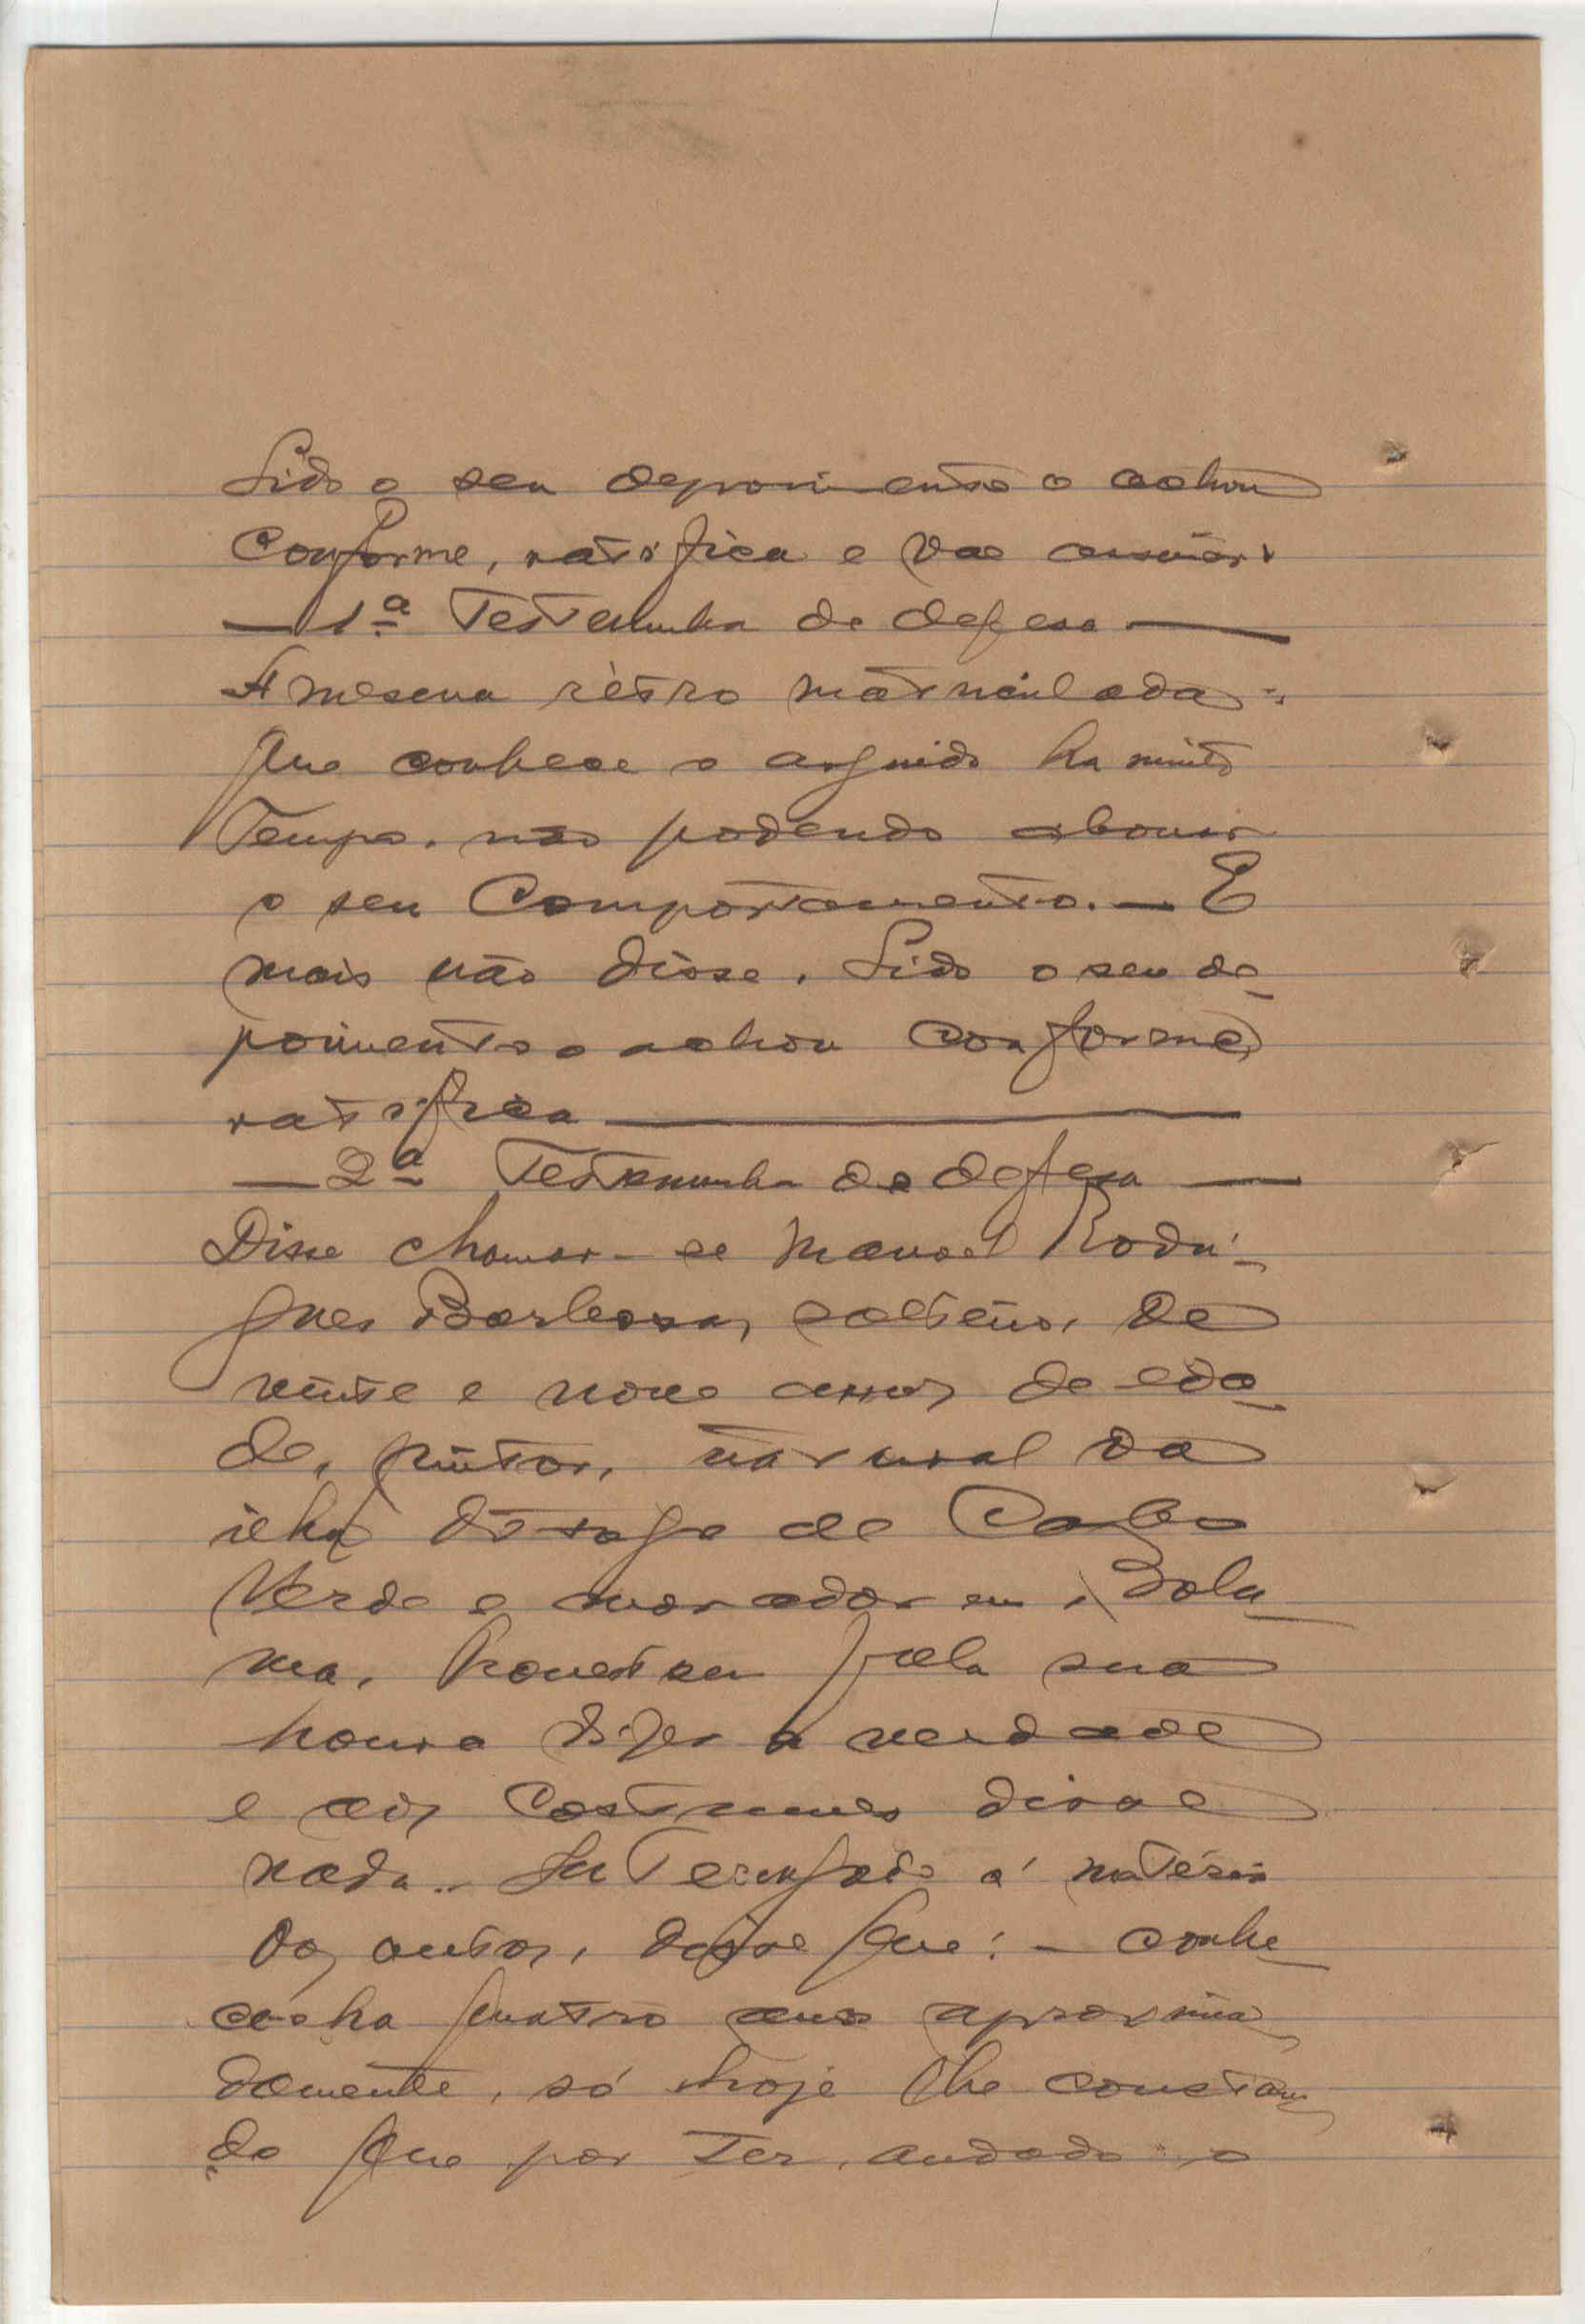 Lido o seu depoimento o achou
conforme, ratifica e vae assinar
— 1ª Testemunha de defesa —
A mesma rétro matriculada:
Que conhece o arguido ha muito
tempo, não podendo abonar
o seu comportamento. — E
mais não disse. Lido o seu de_
poimento o achou conforme,
ratifica —
— 2ª Testemunha de defesa —
Disse chamar-se Manoel Rodri_
gues Barbosa, solteiro, de
vinte e nove annos de eda_
de, pintor, natural da
ilha do Fogo de Cabo
Verde e morador em Bola_
ma, prometeu pela sua
honra dizer a verdade
e aos costumes disse
nada. Interrogado á matéria
dos autos, disse que: - conhe_
ce-o ha quatro anos aproxima_
damente, só hoje lhe constan_
do que por ter andado o